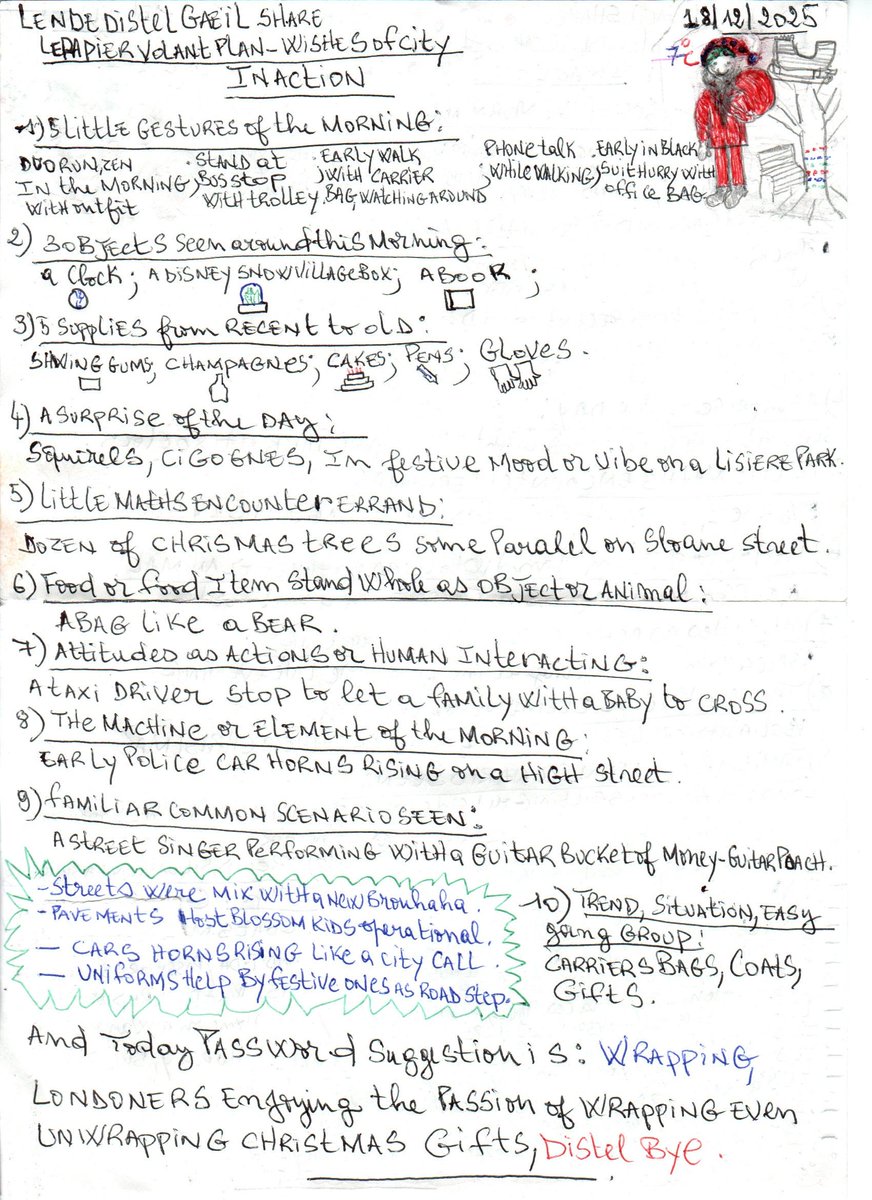 LENDE DISTEL GAEIL SHARE
18/12/2025
LEPAPIER VOLANT PLAN - WISHES of CITY
7°C
IN ACTION
1) 5 LITTLE GESTURES of the MORNING:
DUO RUN, ZEN IN the MORNING, With outfit
. STAND at BUS STOP With TROLLEY,
. EARLY WALK With CARRIER BAG, WATCHING AROUND
; PHONE TALK WHILE WALKING,
. EARLY IN BLACK SUIT HURRY WITH OFFICE BAG
2) 3 OBJECTS Seen around this Morning:
a Clock; A DISNEY SNOW VILLAGE BOX; A BOOK ;
3) 5 SUPPLIES from RECENT to OLD:
GUMS, CHAMPAGNES; CAKES; PENS; GLOVES.
4) A SURPRISE of the DAY;
Squirels, CIGOGNES, In festive Mood or Vibe on a LISIERE PARK.
5) Little MATHS ENCOUNTER ERRAND:
DOZEN of CHRISMAS tREES some Paralel on Sloane Street.
6) Food or food Item Stand Whole as OBJECT or ANIMAL:
A BAG LIKE a BEAR.
7) Attitudes as ACTIONS or HUMAN INTERACTING:
A tAXI DRIVER STOP to let a FAMILY With a BABY to CROSS.
8) THE MACHINE or ELEMENT of the MORNING:
EARLY POLICE CAR HORNS RISING on a HIGH Street.
9) FAMILIAR COMMON SCENARIO SEEN:
A STREET SINGER PERFORMING WITH a GUITAR BUCKET of MONEY-GUITAR POACH.
- Streets were MIX WITH a NEW Brouhaha.
- PAVEMENTS HOST BLOSSOM KIDS operational.
- CARS HORNS RISING LIKE a CITY CALL.
- UNIFORMS HELP BY festive ONES AS ROAD Step.
10) TREND, SITUATION, EASY
going GROUP:
CARRIERS BAGS, COATS,
Gifts.
And Today PASSWORD Suggestion is: WRAPPING,
LONDONERS Enjoying the PASSION of WRAPPING EVEN
UNWRAPPING CHRISTMAS Gifts, Distel Bye.